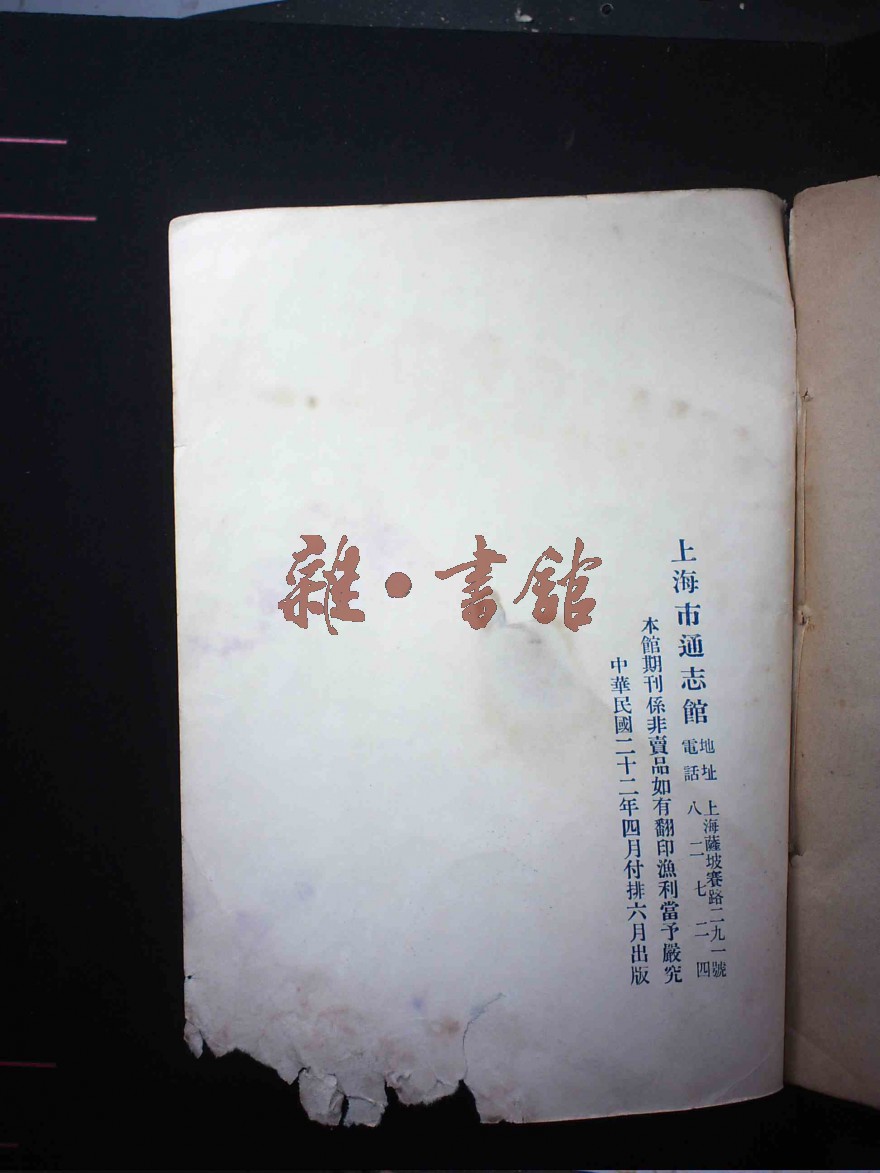 上海市通志館
地址 上海薩坡賽路二九一號
電話 八二七二四
本館期刊係非賣品如有翻印漁利當予嚴究
中華民國二十二年四月付排六月出版
雜·書館